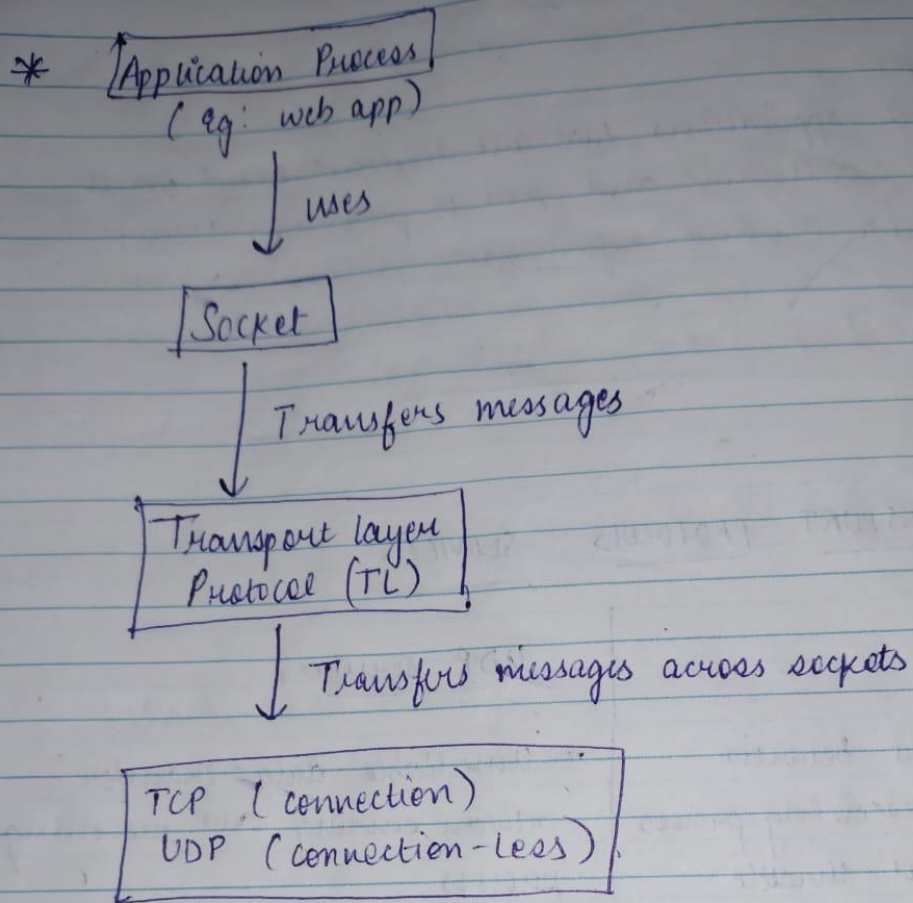 * Application Process
(eg: web app)
uses
Socket
Transfers messages
Transport layer
Protocol (TL)
Transfers messages across sockets
TCP (connection)
UDP (connection-less)